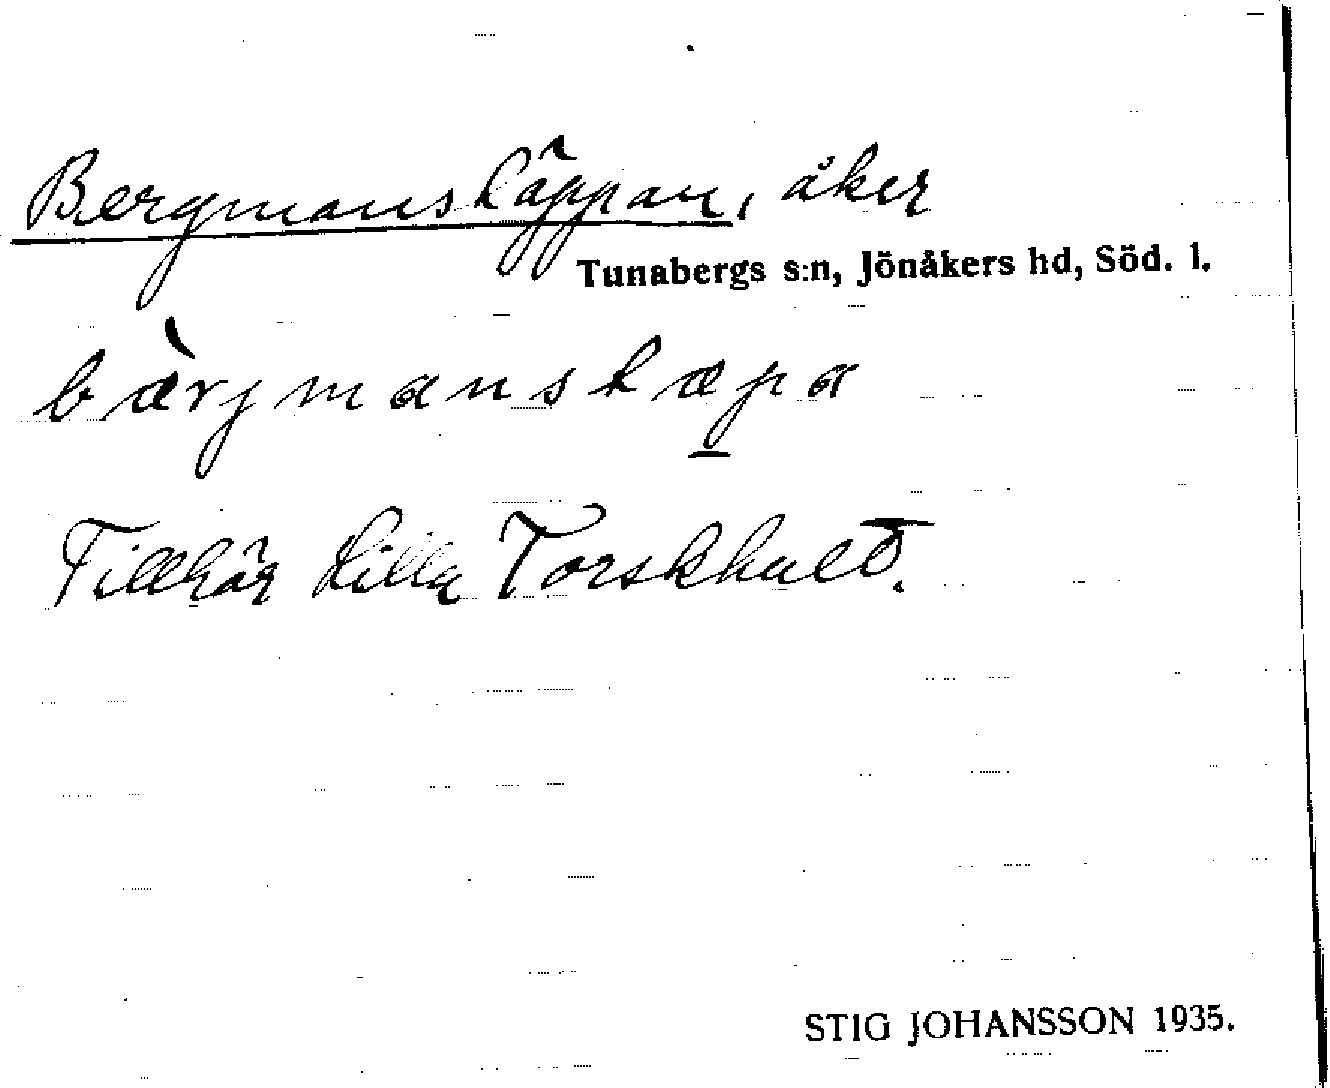 Bergmanskäppan, åker
Tunabergs s:n, Jönåkers hd, Söd. l.
bæ̀rjmanskæpa
Tillhör Lilla Torskhult.
STIG JOHANSSON 1935.